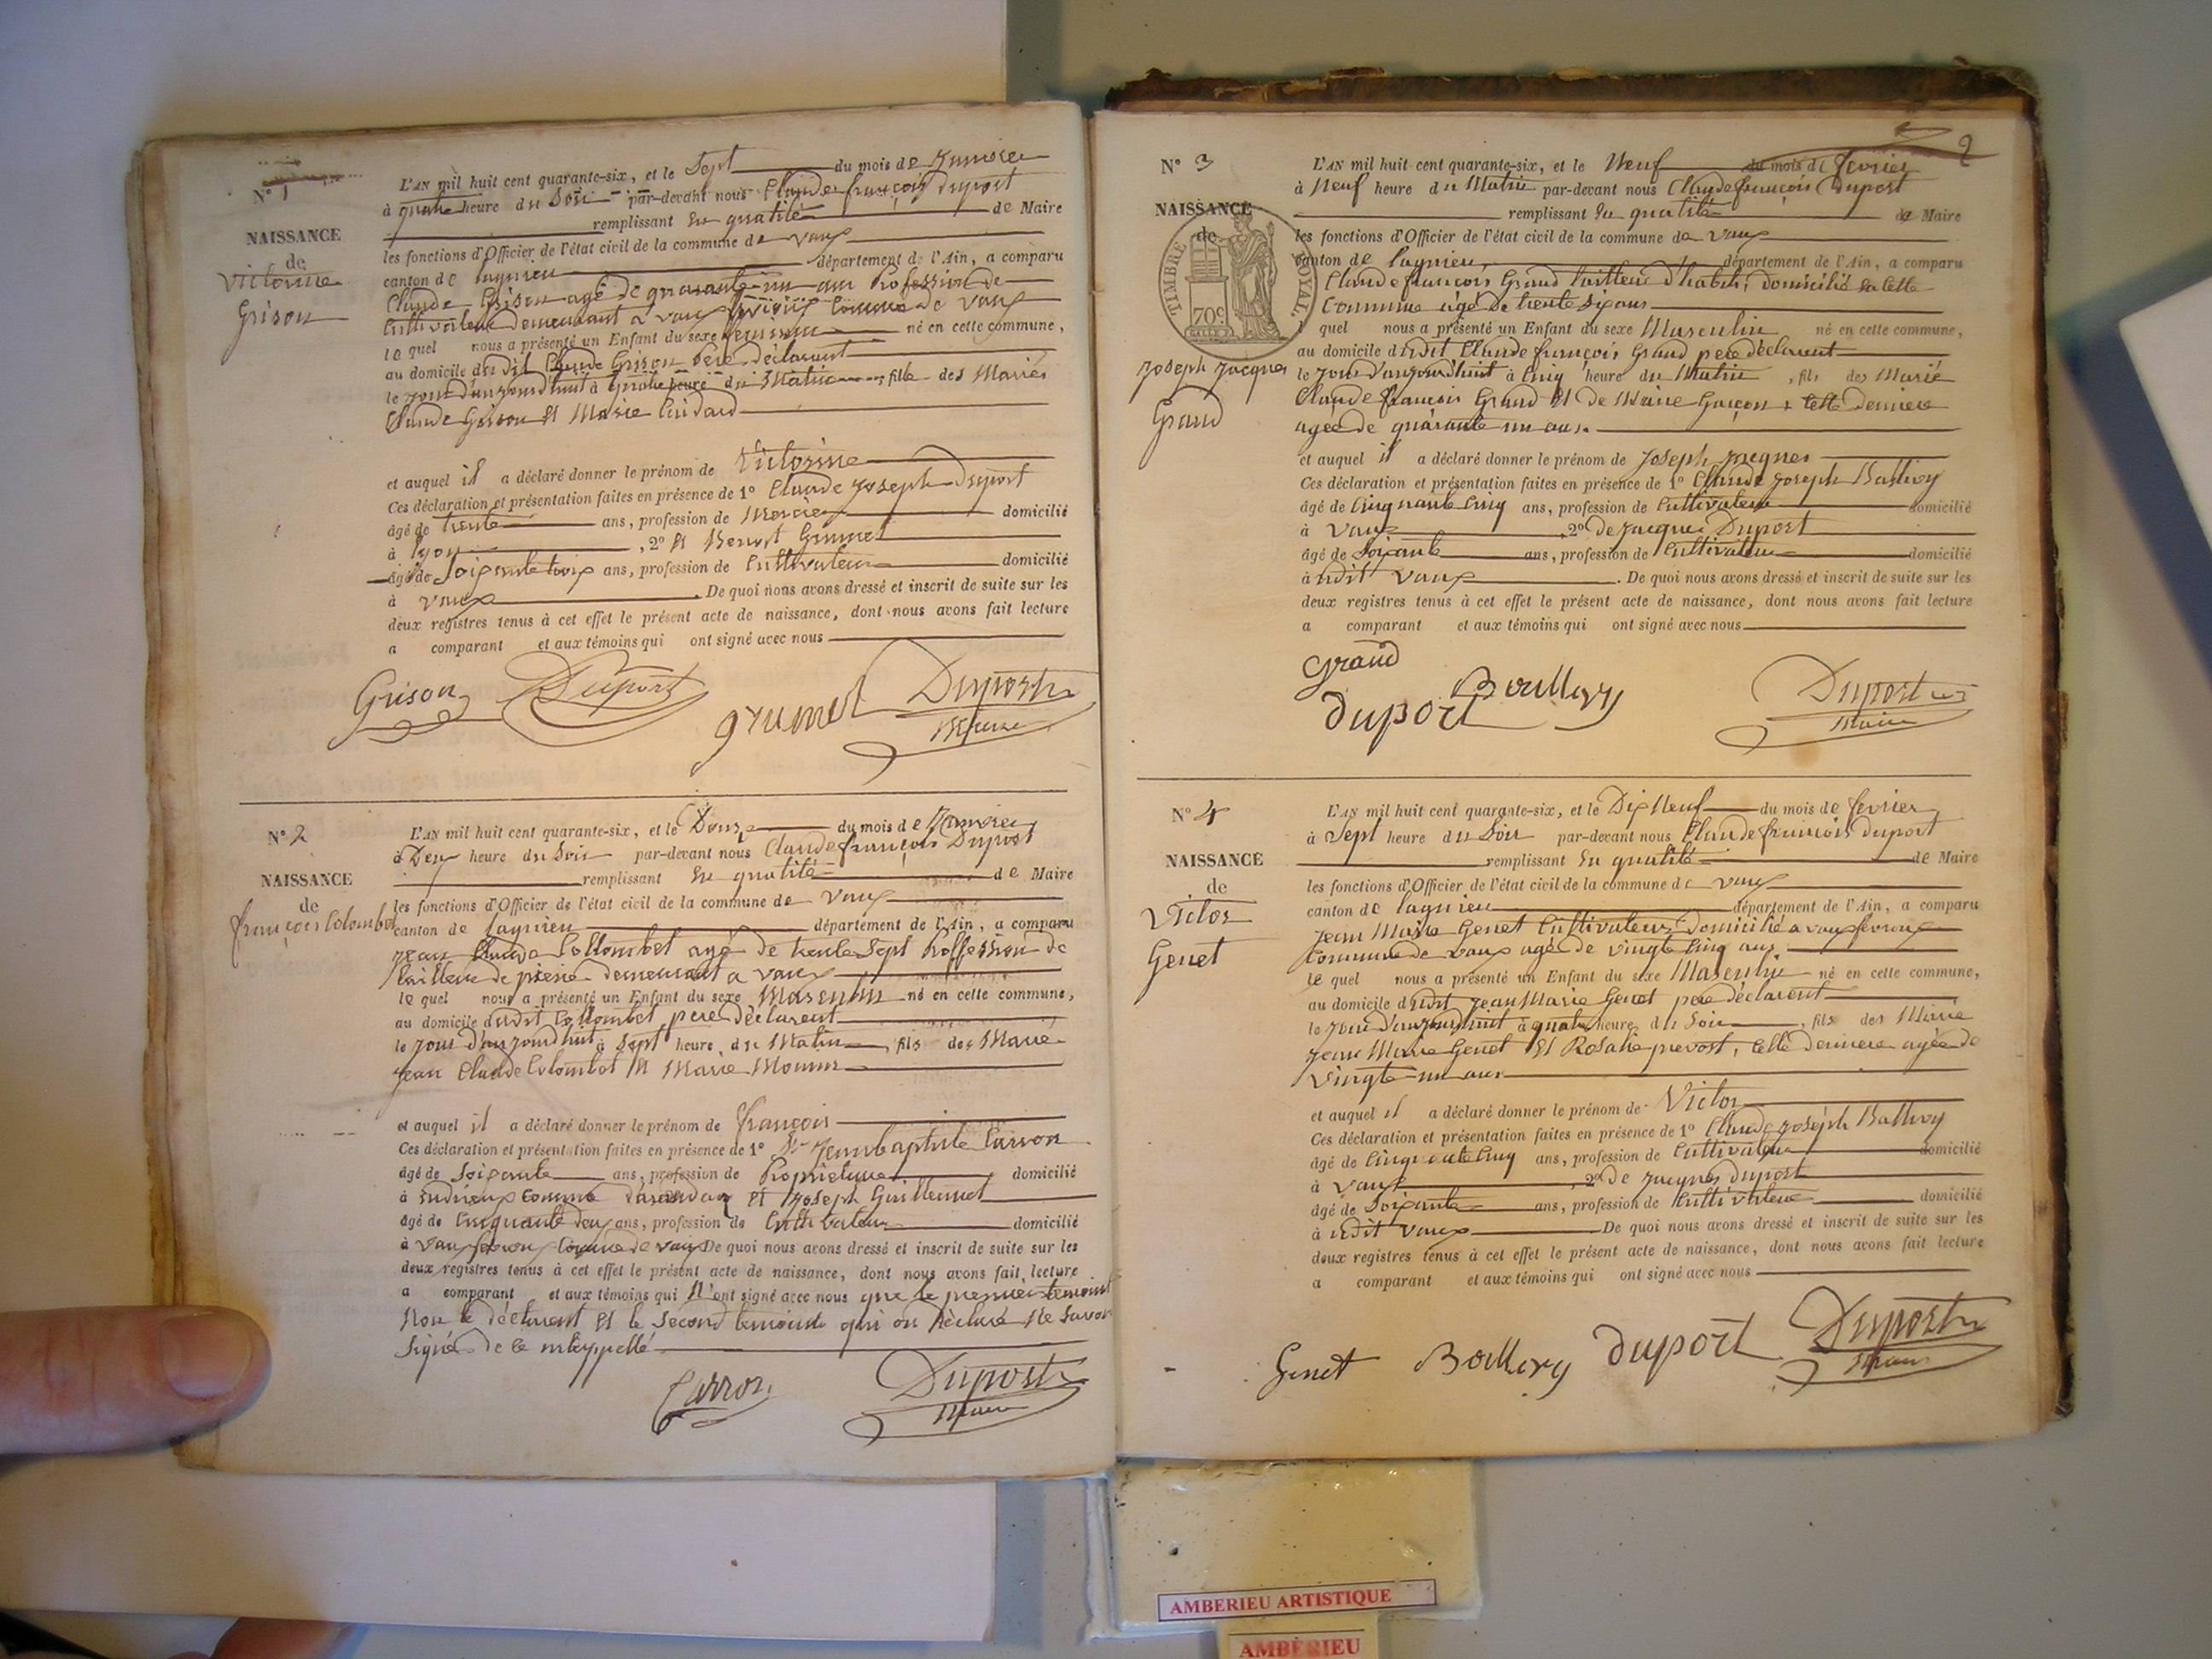 N° 1
NAISSANCE
de
Victorine
Grison
L'AN mil huit cent quarante-six, et le Sept du mois de Janvier
à quatre heure du Soir par-devant nous Claude françois Duport
remplissant En qualité de Maire
les fonctions d'Officier de l'état civil de la commune de vaux
canton de lagnieu département de l'Ain, a comparu
Claude Grison agé de quarante un ans Profession de
Cultivateur demeurant a vaux Commune de vaux
le quel nous a présenté un Enfant du sexe feminin né en cette commune,
au domicile du dit Claude Grison Père déclarent
le jour d'aujourd'huit à quatre heure du Matin fille des Mariés
Claude Grison Et Marie
et auquel il a déclaré donner le prénom de Victorine
Ces déclaration et présentation faites en présence de 1° Claude Joseph Duport
âgé de trente ans, profession de Mercier domicilié
à lyon , 2° Et Benoit Grumet
âgé de Soixante trois ans, profession de Cultivateur domicilié
à vaux . De quoi nous avons dressé et inscrit de suite sur les
deux registres tenus à cet effet le présent acte de naissance, dont nous avons fait lecture
a comparant et aux témoins qui ont signé avec nous
Grison Duport grumet Duport
Maire
N° 2
NAISSANCE
de
françois Colombet
L'AN mil huit cent quarante-six, et le Douze du mois de Janvier
à Deux heure du Soir par-devant nous Claude françois Duport
remplissant En qualité de Maire
les fonctions d'Officier de l'état civil de la commune de vaux
canton de lagnieu département de l'Ain, a comparu
Jean Claude Collombet agé de trente Sept Proffession de
tailleur de pierre demeurant a vaux
le quel nous a présenté un Enfant du sexe Masculin né en cette commune,
au domicile dudit Collombet pere déclarent
le jour d'aujourdhuit à Sept heure du Matin , fils des Marié
Jean Claude Colombet Et Marie
et auquel il a déclaré donner le prénom de françois
Ces déclaration et présentation faites en présence de 1° Sr Jean baptiste Carron
âgé de Soixante ans, profession de Proprietaire domicilié
à indrieux Comune Et Joseph Guillermet
âgé de Cinquante deux ans, profession de Cultivateur domicilié
à vaux fevroux Comune de vaux De quoi nous avons dressé et inscrit de suite sur les
deux registres tenus à cet effet le présent acte de naissance, dont nous avons fait lecture
a comparant et aux témoins qui N'ont signé avec nous que le premier temoint
Non le déclarent Et le Second temoint qui on Déclaré Ne Savoir
Signé de ce
Carron Duport
Maire
2
N° 3
NAISSANCE
de
TIMBRE ROYAL.
70c
Joseph Jacques
Grand
L'AN mil huit cent quarante-six, et le Neuf du mois de fevrier
à Neuf heure du Matin par-devant nous Claude françois Duport
remplissant En qualité de Maire
les fonctions d'Officier de l'état civil de la commune de vaux
canton de lagnieu département de l'Ain, a comparu
Claude françois Grand tailleur d'habits, domicilié
Commune agé de trente Six ans
l quel nous a présenté un Enfant du sexe Masculin né en cette commune,
au domicile dudit Claude françois Grand pere déclarent
le jour d'aujourdhuit à Cinq heure du Matin , fils des Marié
Claude françois Grand Et de Marie Garçon + Cette derniere
agée de quarante un ans.
et auquel il a déclaré donner le prénom de Joseph jacques
Ces déclaration et présentation faites en présence de 1° Claude Joseph
âgé de Cinquante Cinq ans, profession de Cultivateur domicilié
à vaux , 2° de Jacques Duport
âgé de Soixante ans, profession de Cultivateur domicilié
à udit vaux . De quoi nous avons dressé et inscrit de suite sur les
deux registres tenus à cet effet le présent acte de naissance, dont nous avons fait lecture
a comparant et aux témoins qui ont signé avec nous
Grand
duport Duport
Maire
N° 4
NAISSANCE
de
Victor
Genet
L'AN mil huit cent quarante-six, et le Dix Neuf du mois de fevrier
à Sept heure du Soir par-devant nous Claude françois duport
remplissant En qualité de Maire
les fonctions d'Officier de l'état civil de la commune de vaux
canton de lagnieu département de l'Ain, a comparu
Jean Marie Genet Cultivateur Domicilié a vaux fevroux
Commune de vaux agé de vingt Cinq ans
le quel nous a présenté un Enfant du sexe Masculin né en cette commune,
au domicile dudit Jean Marie Genet pere déclarent
le jour d'aujourdhuit à quatre heure du Soir , fils des Marié
Jean Marie Genet Et Rosalie prevost, Cette derniere agée de
vingt un ans
et auquel il a déclaré donner le prénom de Victor
Ces déclaration et présentation faites en présence de 1° Claude Joseph
âgé de Cinquante Cinq ans, profession de Cultivateur domicilié
à vaux , 2° de Jacques Duport
âgé de Soixante ans, profession de Cultivateur domicilié
à udit vaux De quoi nous avons dressé et inscrit de suite sur les
deux registres tenus à cet effet le présent acte de naissance, dont nous avons fait lecture
a comparant et aux témoins qui ont signé avec nous
Genet duport Duport
Maire
AMBERIEU ARTISTIQUE
AMBÉRIEU